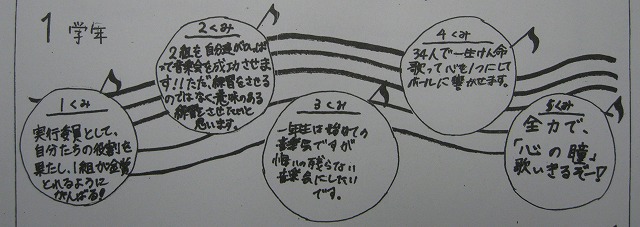 1 学年
1くみ
実行委員として、
自分たちの役割を
果たし、1組が金賞
とれるように
がんばる!
2くみ
2組を自分達がひっぱ
って音楽会を成功させま
す!!ただ練習をさせる
のではなく意味のある
練習をさせたいと
思います。
3くみ
一年生は始めての
音楽会ですが
悔いの残らない
音楽会にしたい
です。
4くみ
34人で一生けん命
歌って心を1つにして
ホールに響かせます。
5くみ
全力で、
「心の瞳」
歌いきるぞー!